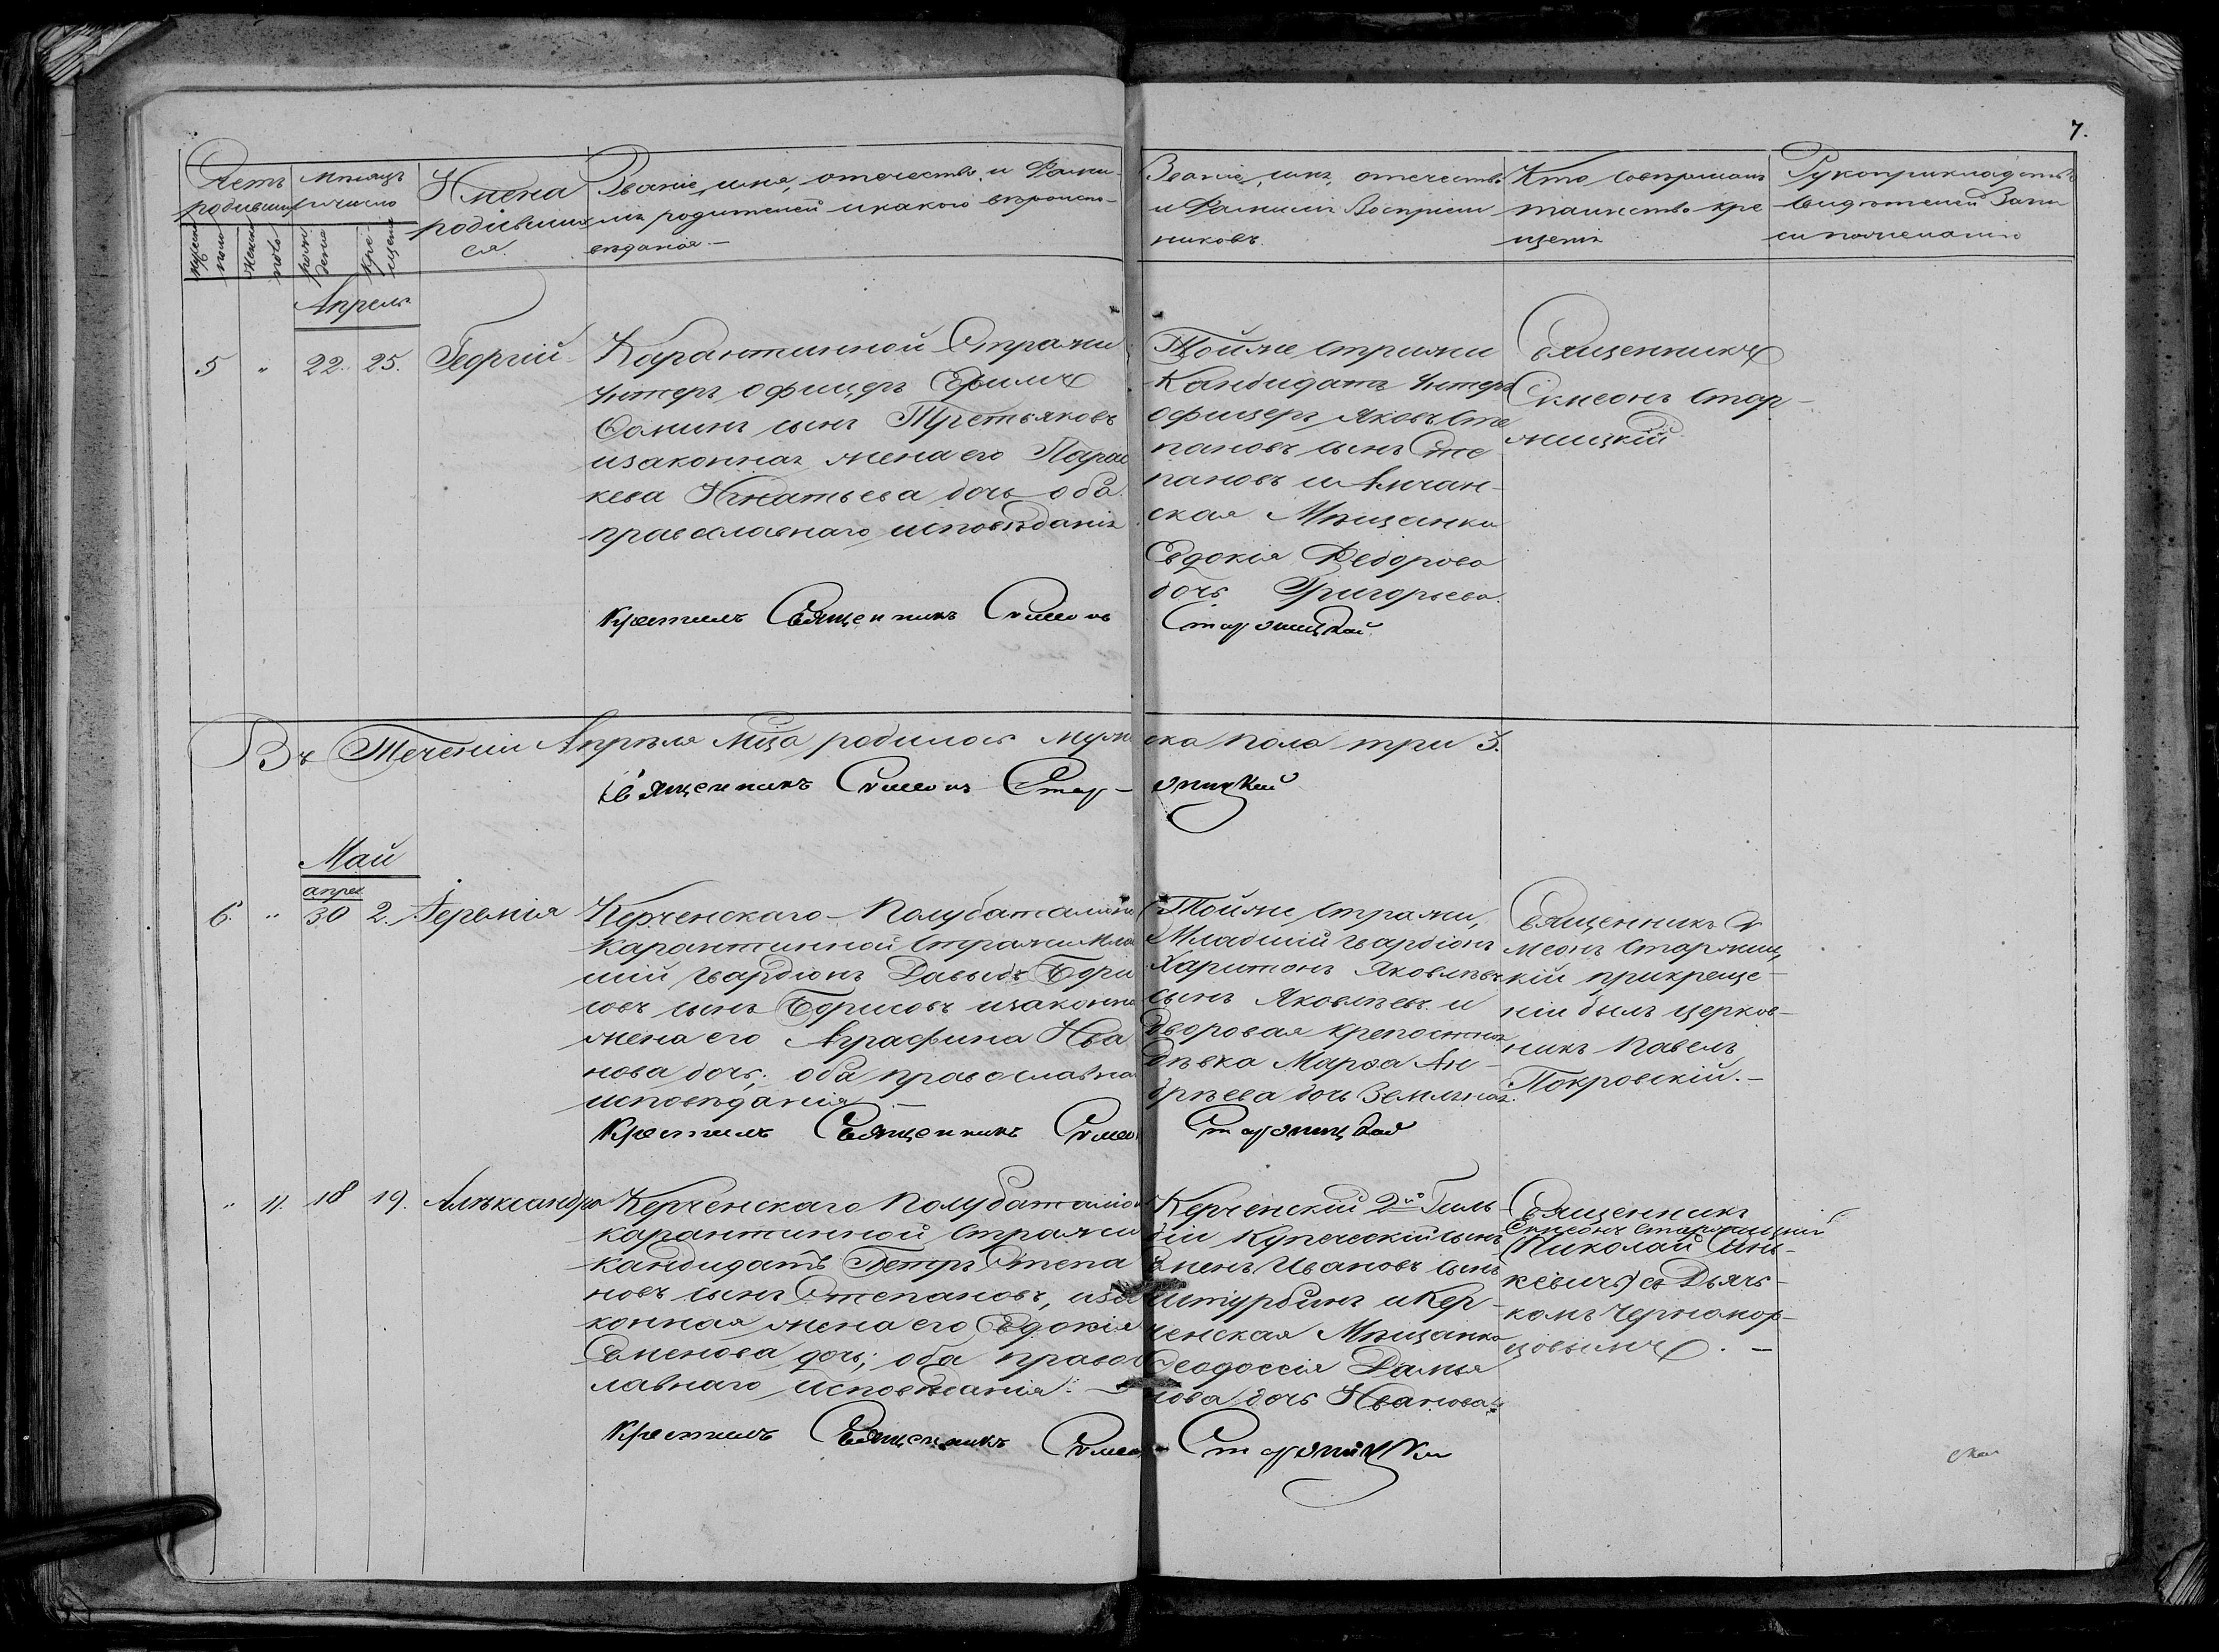 7.
Счетъ родившихся
Мѣсяцъ и число
Имена родившихся.
Званіе, имя, отчество, и Фами-
лія родителей и какого вѣроиспо-
вѣданія.—
Званіе, имя, отечество
и Фамилія Воспріем
никовъ.
Кто совершалъ
таинство кре
щенія
Рукоприкладство
свидѣтелей Запи
си по желанію
мужеска пола
женска пола
рожденія
крещенія
Апрель
5 " 22. 25. Георгій
Карантинной Стражи
Унтеръ офицеръ Ефимъ
Фоминъ сынъ Третьяковъ
и законная жена его Парас
кева Игнатьева дочь оба
православнаго исповѣданія
Тойже стражи
Кандидатъ Унтеръ
офицеръ Яковъ Сте
пановъ сынъ Сте
пановъ и
ская Мѣщанка
Евдокія Федорова
дочь Григорьева.
Священникъ
Симеонъ Стар-
жицкій
Крестилъ Священникъ Симеонъ Старжицкій
Въ Теченіи Апрѣля Мца родилось мужеска пола три 3.
Священникъ Симеонъ Старжицкій
Май
6. " апрел 30 2. Іеремія
Керченскаго Полубаталіона
Карантинной стражи Млад
шій гвардіонъ Давыдъ Бори
совъ сынъ Борисовъ и законная
жена его Аграфина Ива
нова дочь; оба православнаго
исповѣданія.—
Тойже стражи,
Младшій гвардіонъ
Харитонъ Яковлевъ
сынъ Яковлевъ и
Дворовая крепостная
Дѣвка Марѳа Ан-
дрѣева дочь
Священникъ Си
меонъ Старжиц
кій при креще-
ніи былъ церков-
никъ Павелъ
Покровскій.—
Крестилъ Священникъ Симеонъ Старжицкій
" 11. 18 19. Алѣксандра
Керченскаго Полубаталіона
карантинной стражи
кандидатъ Петръ Степа
новъ сынъ Степановъ, и за
конная жена его Евдокія
Семенова дочь; оба правос
лавнаго исповѣданія.—
Керченскій 2й Гиль
діи Купеческій сынъ
Семенъ Ивановъ сынъ
Штурбинъ и Кер-
ченская Мѣщанка
Феодоссія Дамья
нова дочь Иванова
Священникъ
Симеонъ Старжицкій
(Николай
кевичъ) съ Дьяч-
комъ Черномор-
цовымъ.—
Крестилъ Священникъ Симеонъ Старжицкій